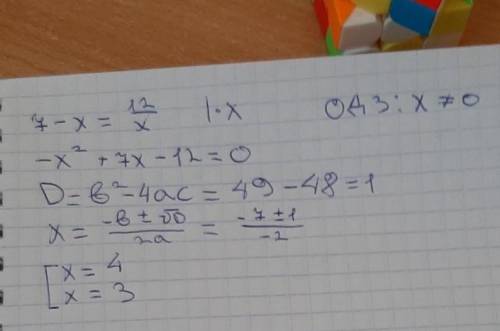 7 - x = 12/x | · x ОДЗ: x ≠ 0
-x² + 7x - 12 = 0
D = b² - 4ac = 49 - 48 = 1
x = (-b ± √D)/2a = (-7 ± 1)/-2
[x = 4
x = 3